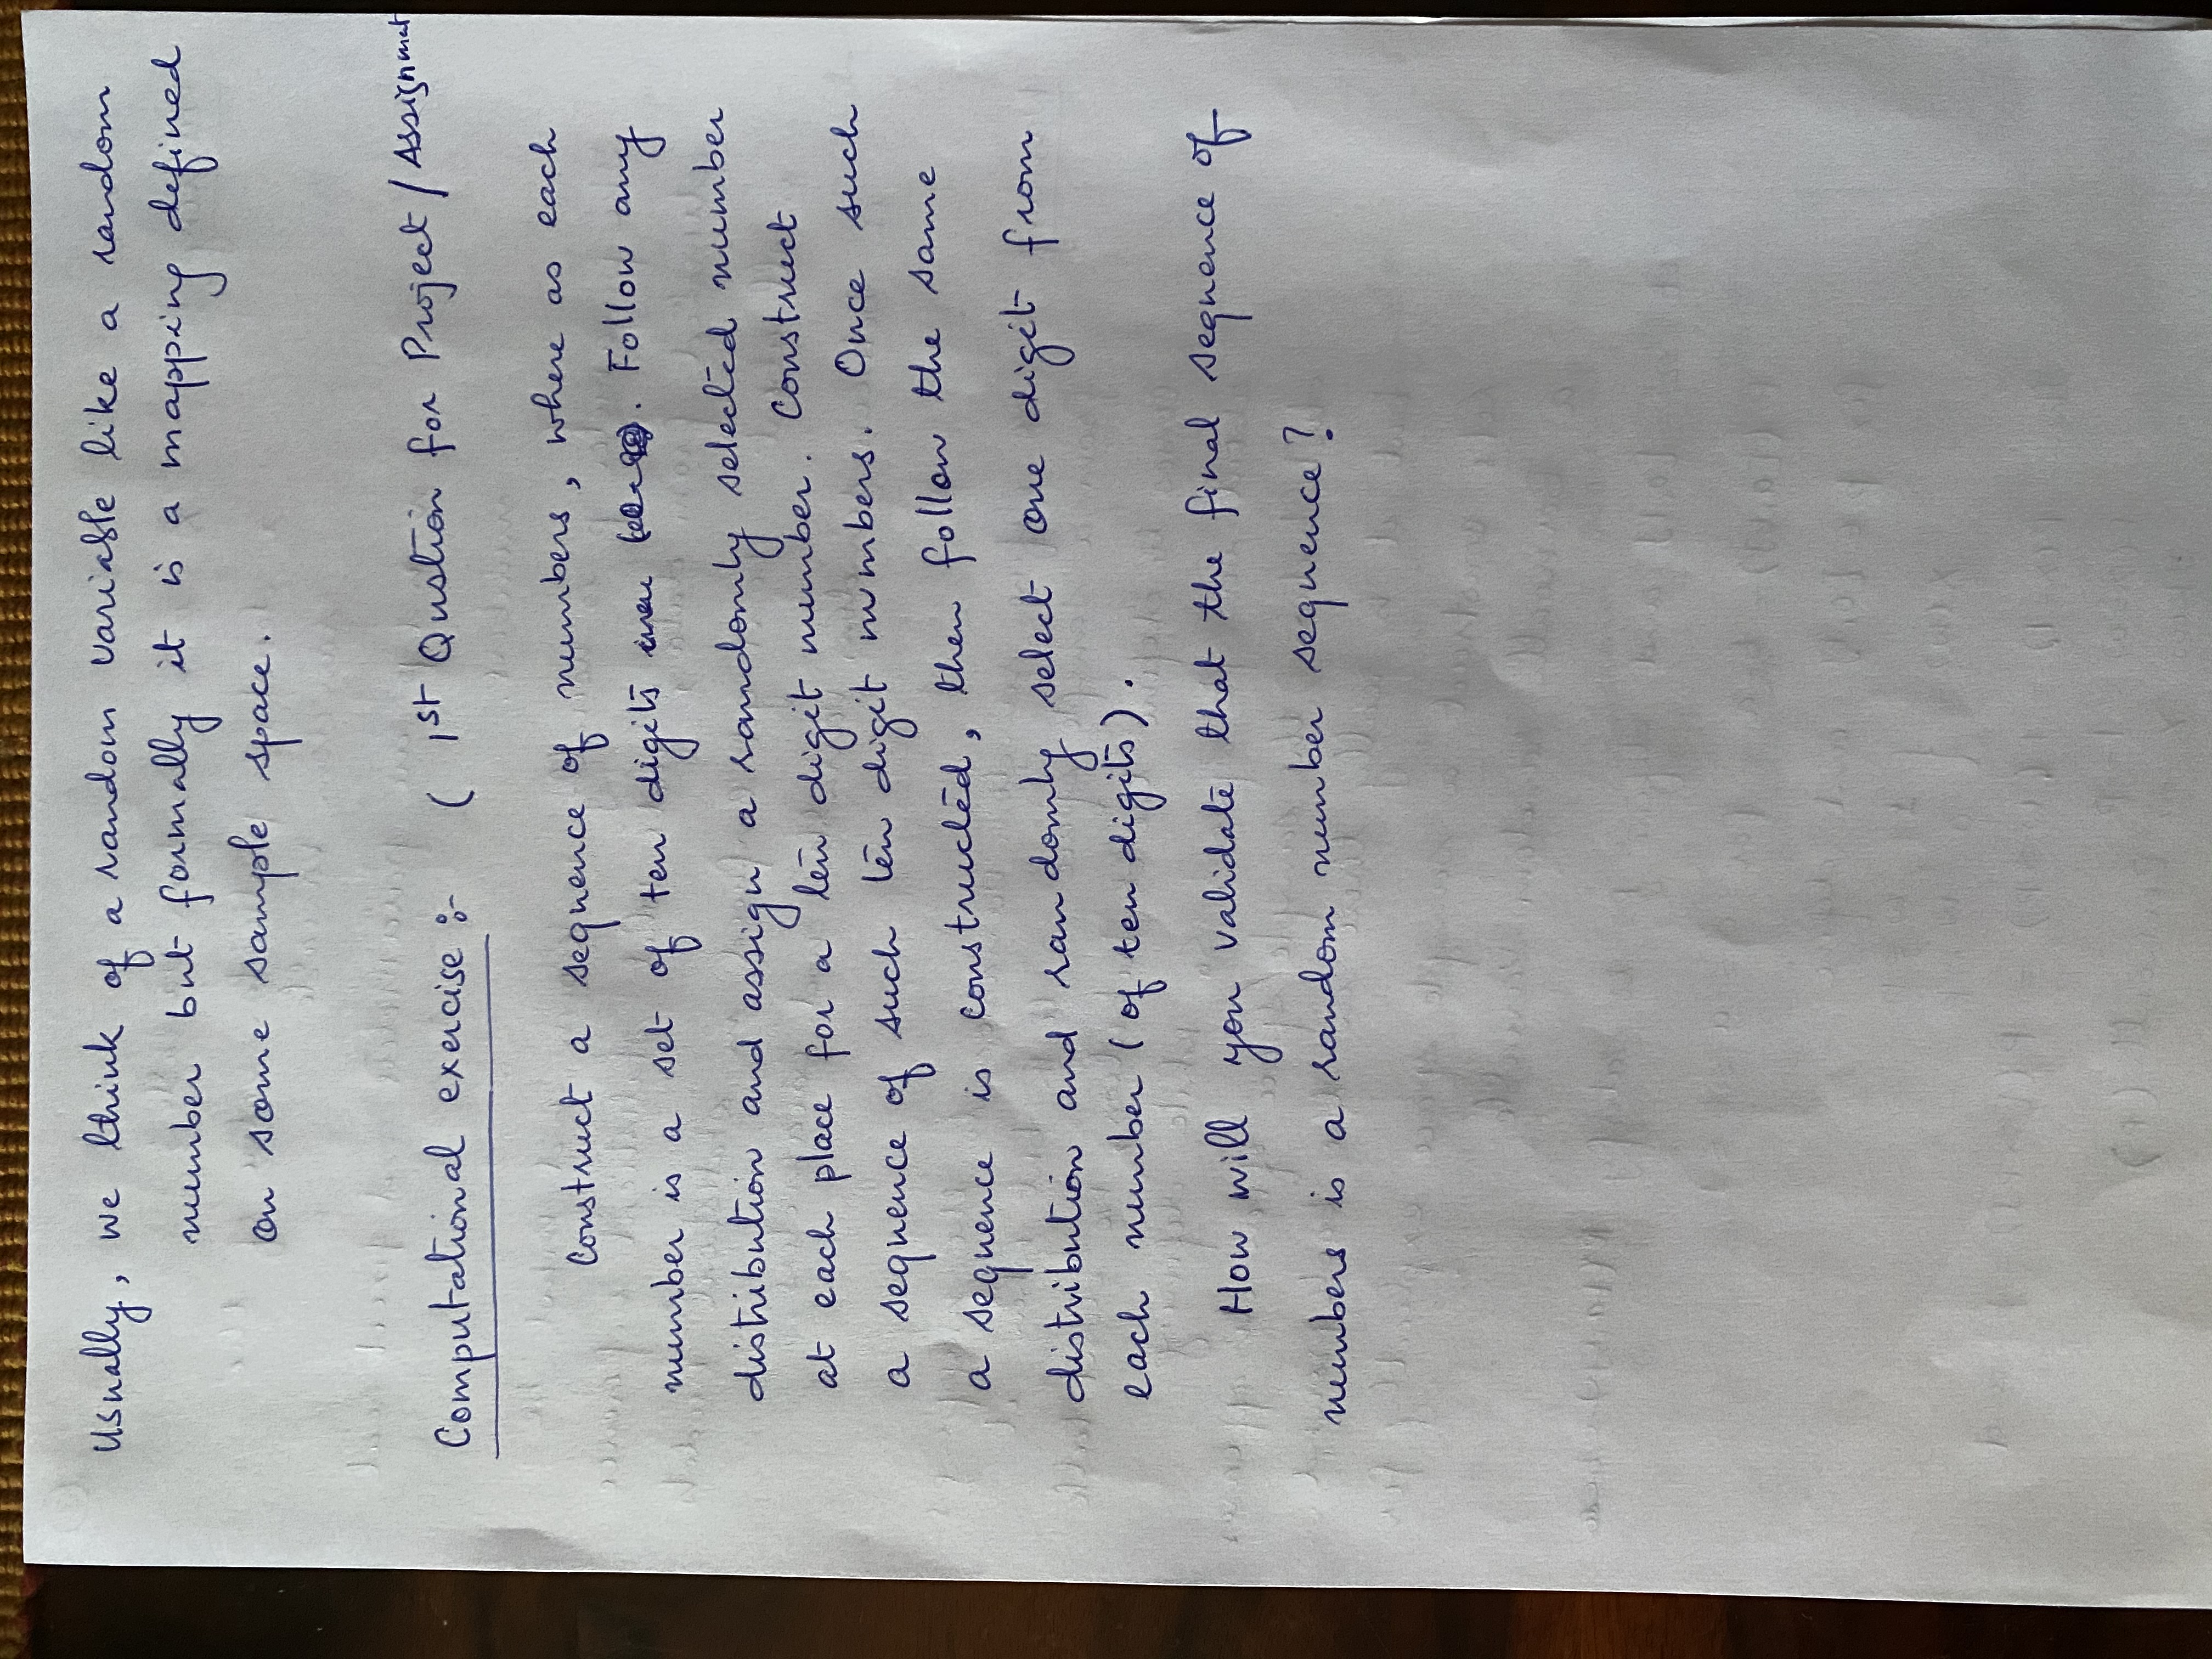 Usually, we think of a random variable like a random
number but formally it is a mapping defined
on some sample space.
Computational exercise :- ( 1st Qustion for Project / Assignmat
Construct a sequence of numbers, where as each
number is a set of ten digits . Follow any
distribution and assign a randomly selected number
at each place for a ten digit number. Construct
a sequence of such ten digit numbers. Once such
a sequence is constructed, then follow the same
distribution and randomly select one digit from
each number (of ten digits).
How will you validate that the final sequence of
numbers is a random number sequence?